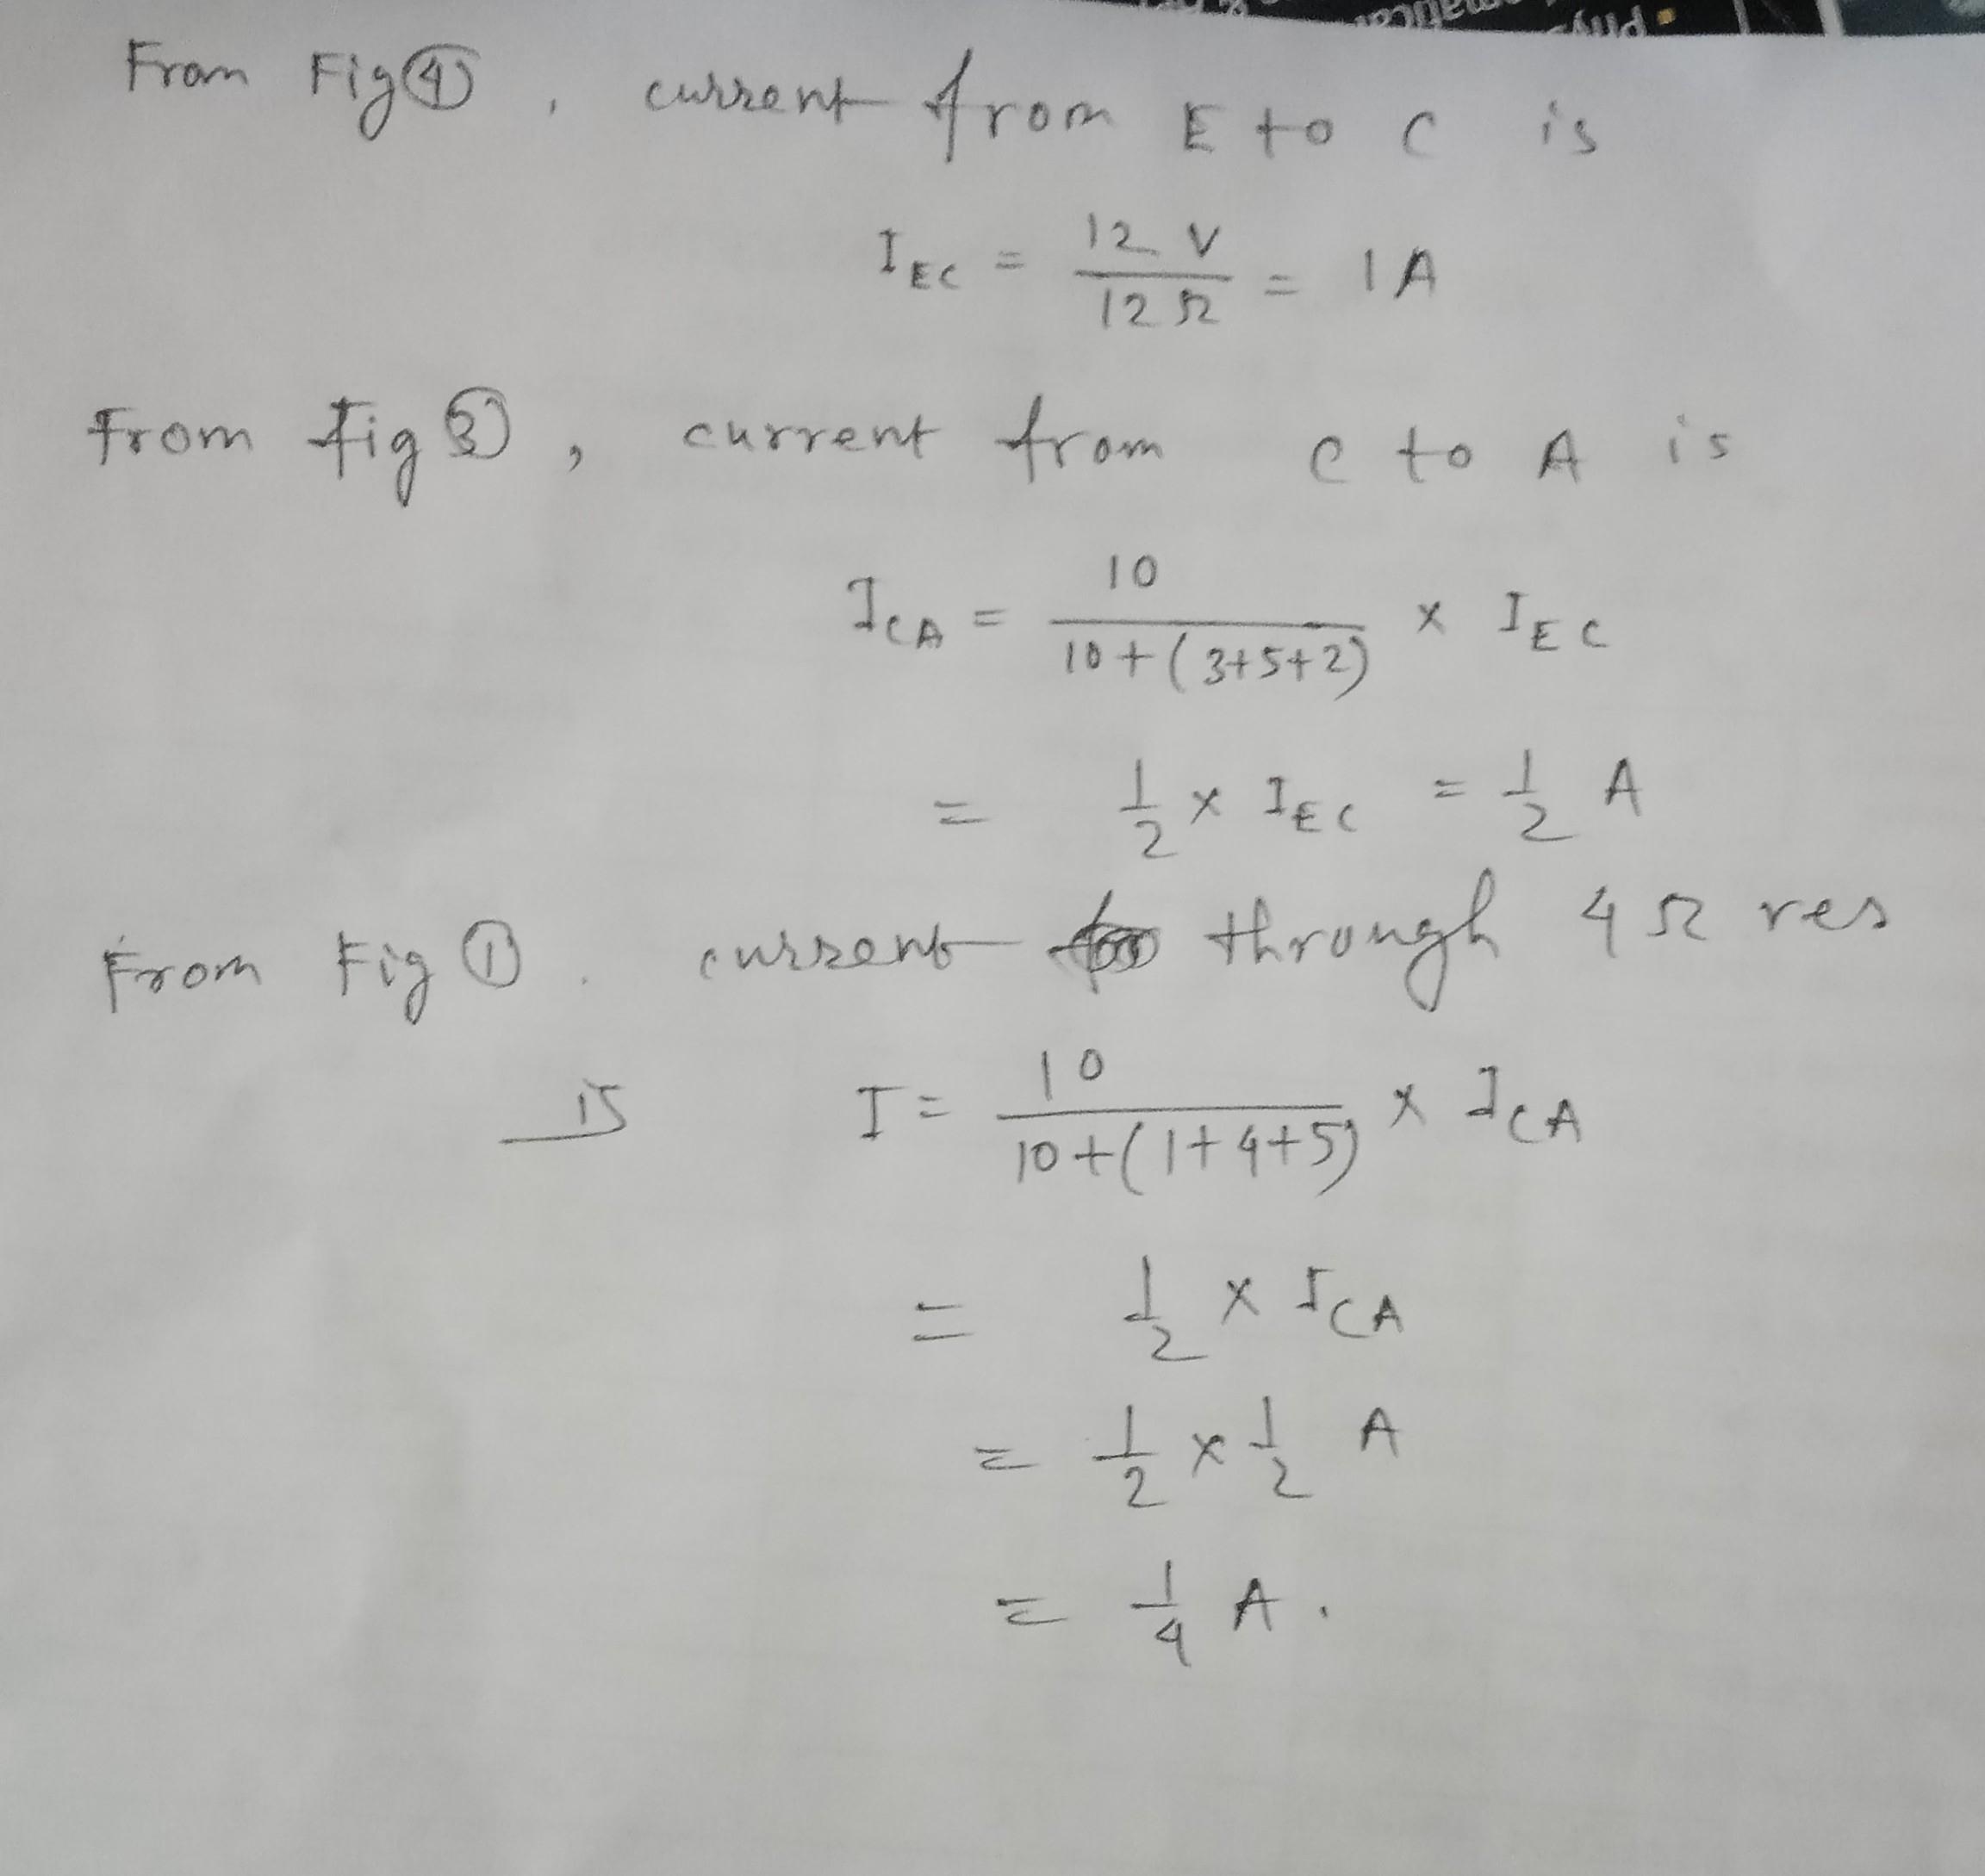 From Fig ④, current from E to C is
I_EC = 12 V / 12 Ω = 1 A
From fig ③, current from C to A is
I_CA = 10 / 10+(3+5+2) × I_EC
= 1/2 × I_EC = 1/2 A
From Fig ①. current through 4 Ω res
is I = 10 / 10+(1+4+5) × I_CA
= 1/2 × I_CA
= 1/2 × 1/2 A
= 1/4 A.